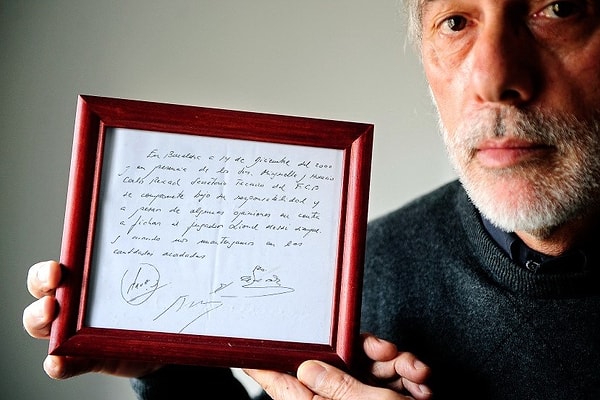 En Barcelona a 14 de diciembre del 2000
y en presencia de los Srs. Minguella y Horacio
Carlos Rexach Secretario Tecnico del F.C.B
se compromete bajo su responsabilidad y
a pesar de algunas opiniones en contra
a fichar al jugador Lionel Messi siempre
y cuando nos mantengamos en las
cantidades acordadas